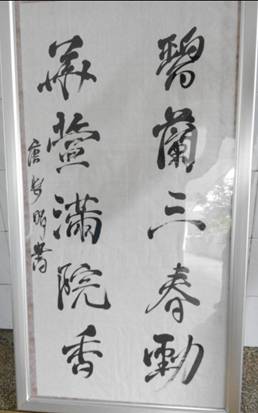 碧蘭三春動
華萱滿院香
唐安明書